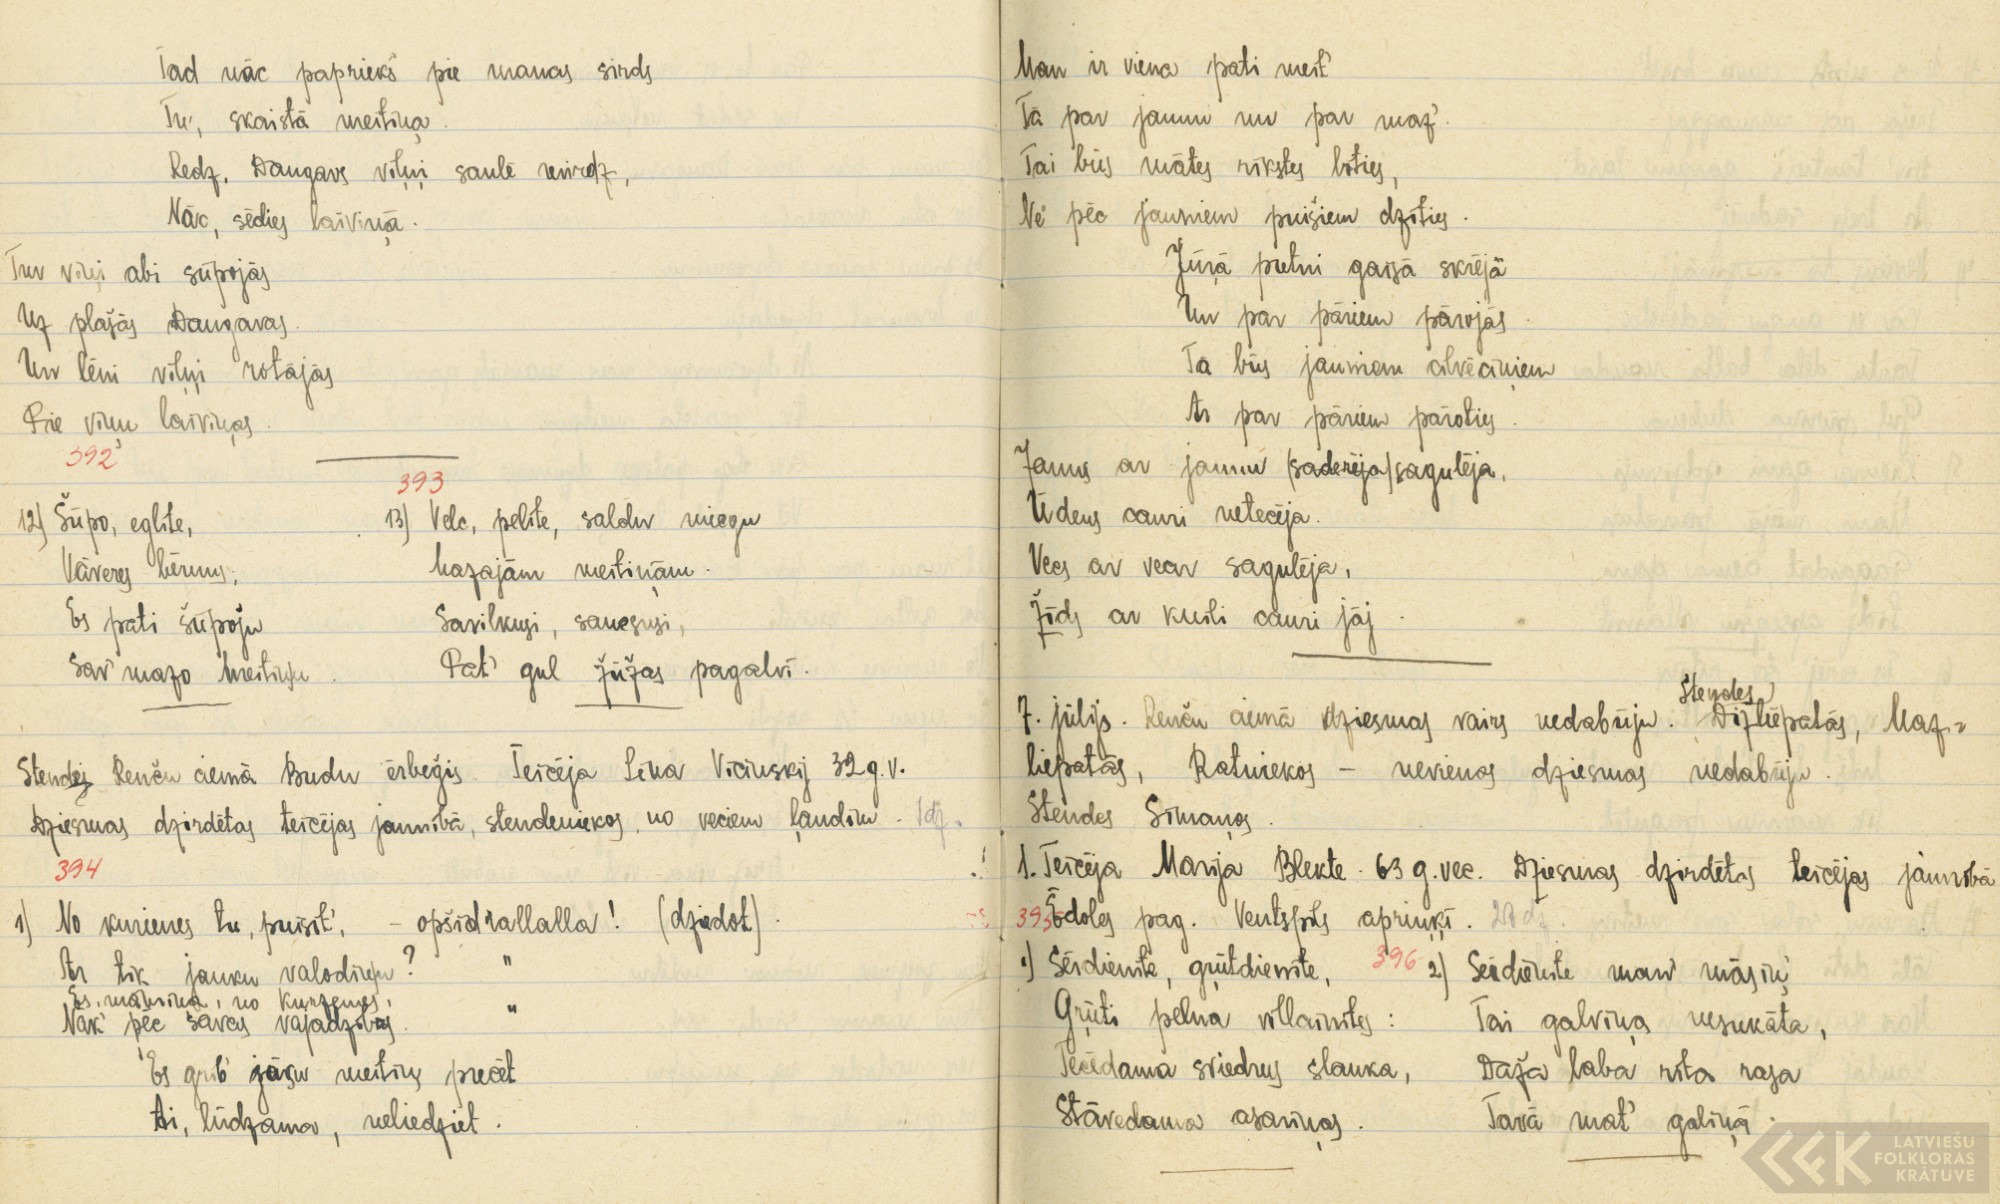 Tad nāc papriekš pie manas sirds
Tu, skaistā meitiņa.
Redz, Daugavs viļņi saulē mirdz,
Nāc, sēdies laiviņā.
Tur viļņi abi šūpojās
Uz plašās Daugavas.
Un lēni viļņi rotājās
Pie viņu laiviņas.
392
393
12) Šūpo, eglīte,
Vāveres bērnus,
Es pati šūpoju
Sav' mazo meitiņu.
13) Velc, pelīte, saldu miegu
Mazajām meitiņām.
Savilkusi, sanesusi,
Pat' gul žūžas pagalvī.
Stendes Renču ciemā Budu ērbeģis. Teicēja Līna Vicinskij 32 g. v.
Dziesmas dzirdētas teicējas jaunībā, stendeniekos, no veciem ļaudīm. 1 dz.
394
1) No kurienes tu, puisīt', – opšidrallalla! (dziedot).
Ar tik jauku valodiņu? "
Es, māmiņa, no Kurzemes,
Nāk' pēc savas vajadzības. "
Es grib' jūsu meitiņ's precēt
Ai, lūdzama, neliedziet.
Man ir viena pati meit'
Tā par jaunu un par maz'.
Tai būs mātes rīkstes bīties,
Ne' pēc jauniem puišiem dzīties.
Jūŗā putni gaisā skrējā
Un par pāriem pārojās.
Tā būs jauniem cilvēciņiem
Ar par pāriem pāroties.
Jauns ar jaunu (saderēja) sagulēja,
Ūdens cauri netecēja.
Vecs ar vecu sagulēja,
Žīds ar kuili cauri jāj.
7. jūlijs. Renču ciemā dziesmas vairs nedabūju. Stendes Dižliepatās, Maz-
liepatās, Ratniekos – nevienas dziesmas nedabūju.
Stendes Sīmaņos.
1. Teicēja Marija Blekte. 63 g. vec. Dziesmas dzirdētas teicējas jaunībā
395
Ēdoles pag. Ventspils apriņķī. 27 dz.
1) Sērdienīte, grūtdienīte,
Grūti pelna villainītes:
Tecēdama sviedrus slauka,
Stāvedama asariņas.
396
2) Sērdienīte man' māsiņ'
Tai galviņa nesukāta,
Daža laba rīta rasa
Tavā mat' galiņā.
LATVIEŠU
FOLKLORAS
KRĀTUVE